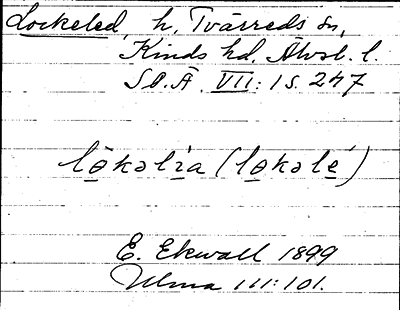 Lockeled, h, Tvärreds sn,
Kinds hd, Älvsb. l.
SO.Ä VII:1 s. 247
lòkəlìa (lokəlé)
E. Ekwall 1899
Ulma 111:101.